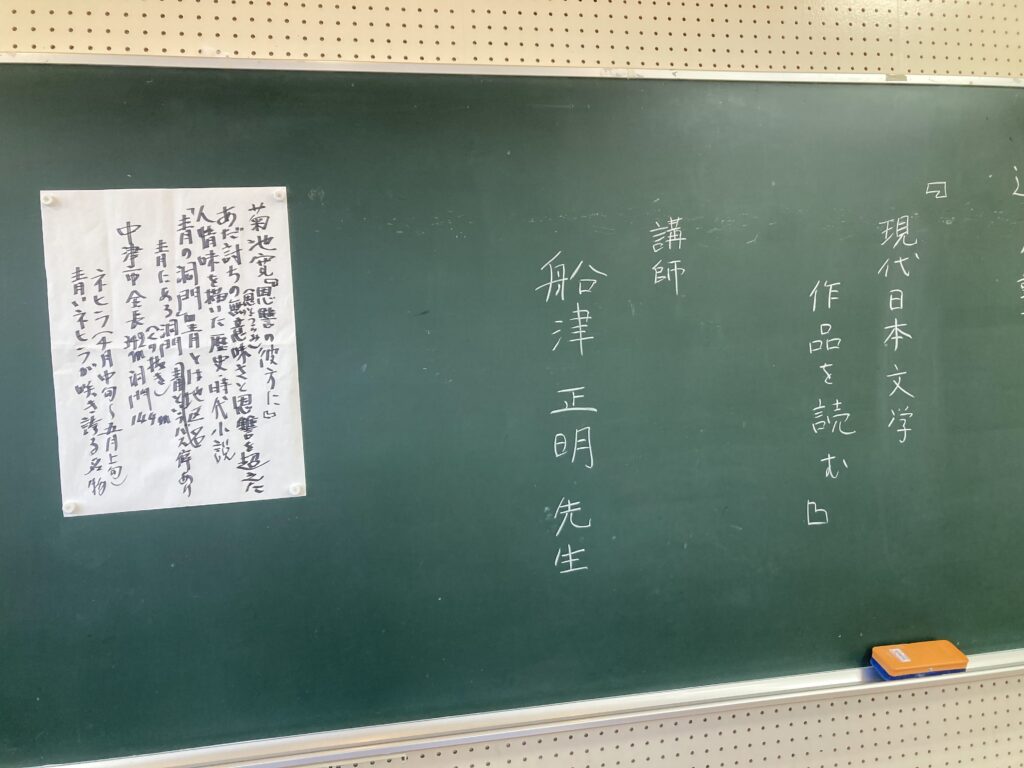 『現代日本文学
作品を読む』
講師
船津 正明 先生
菊池寛『恩讐の彼方に』
あだ討ちの無意味さと恩讐を超えた
人情味を描いた歴史時代小説
「青の洞門」青とは地区名
青にある洞門
中津市 全長
ネモフィラ(四月中旬~五月上旬)
青いネモフィラが咲き誇る名物